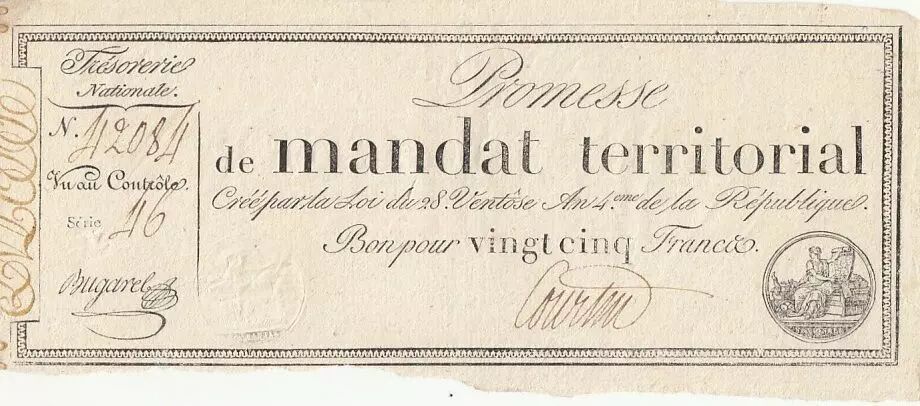 Trésorerie
Nationale.
N. 42084
Vu au Contrôle.
Série 46
Bugarel
Promesse
de mandat territorial
Créé par la Loi du 28. Ventôse An 4.eme de la République.
Bon pour vingt cinq Francs.